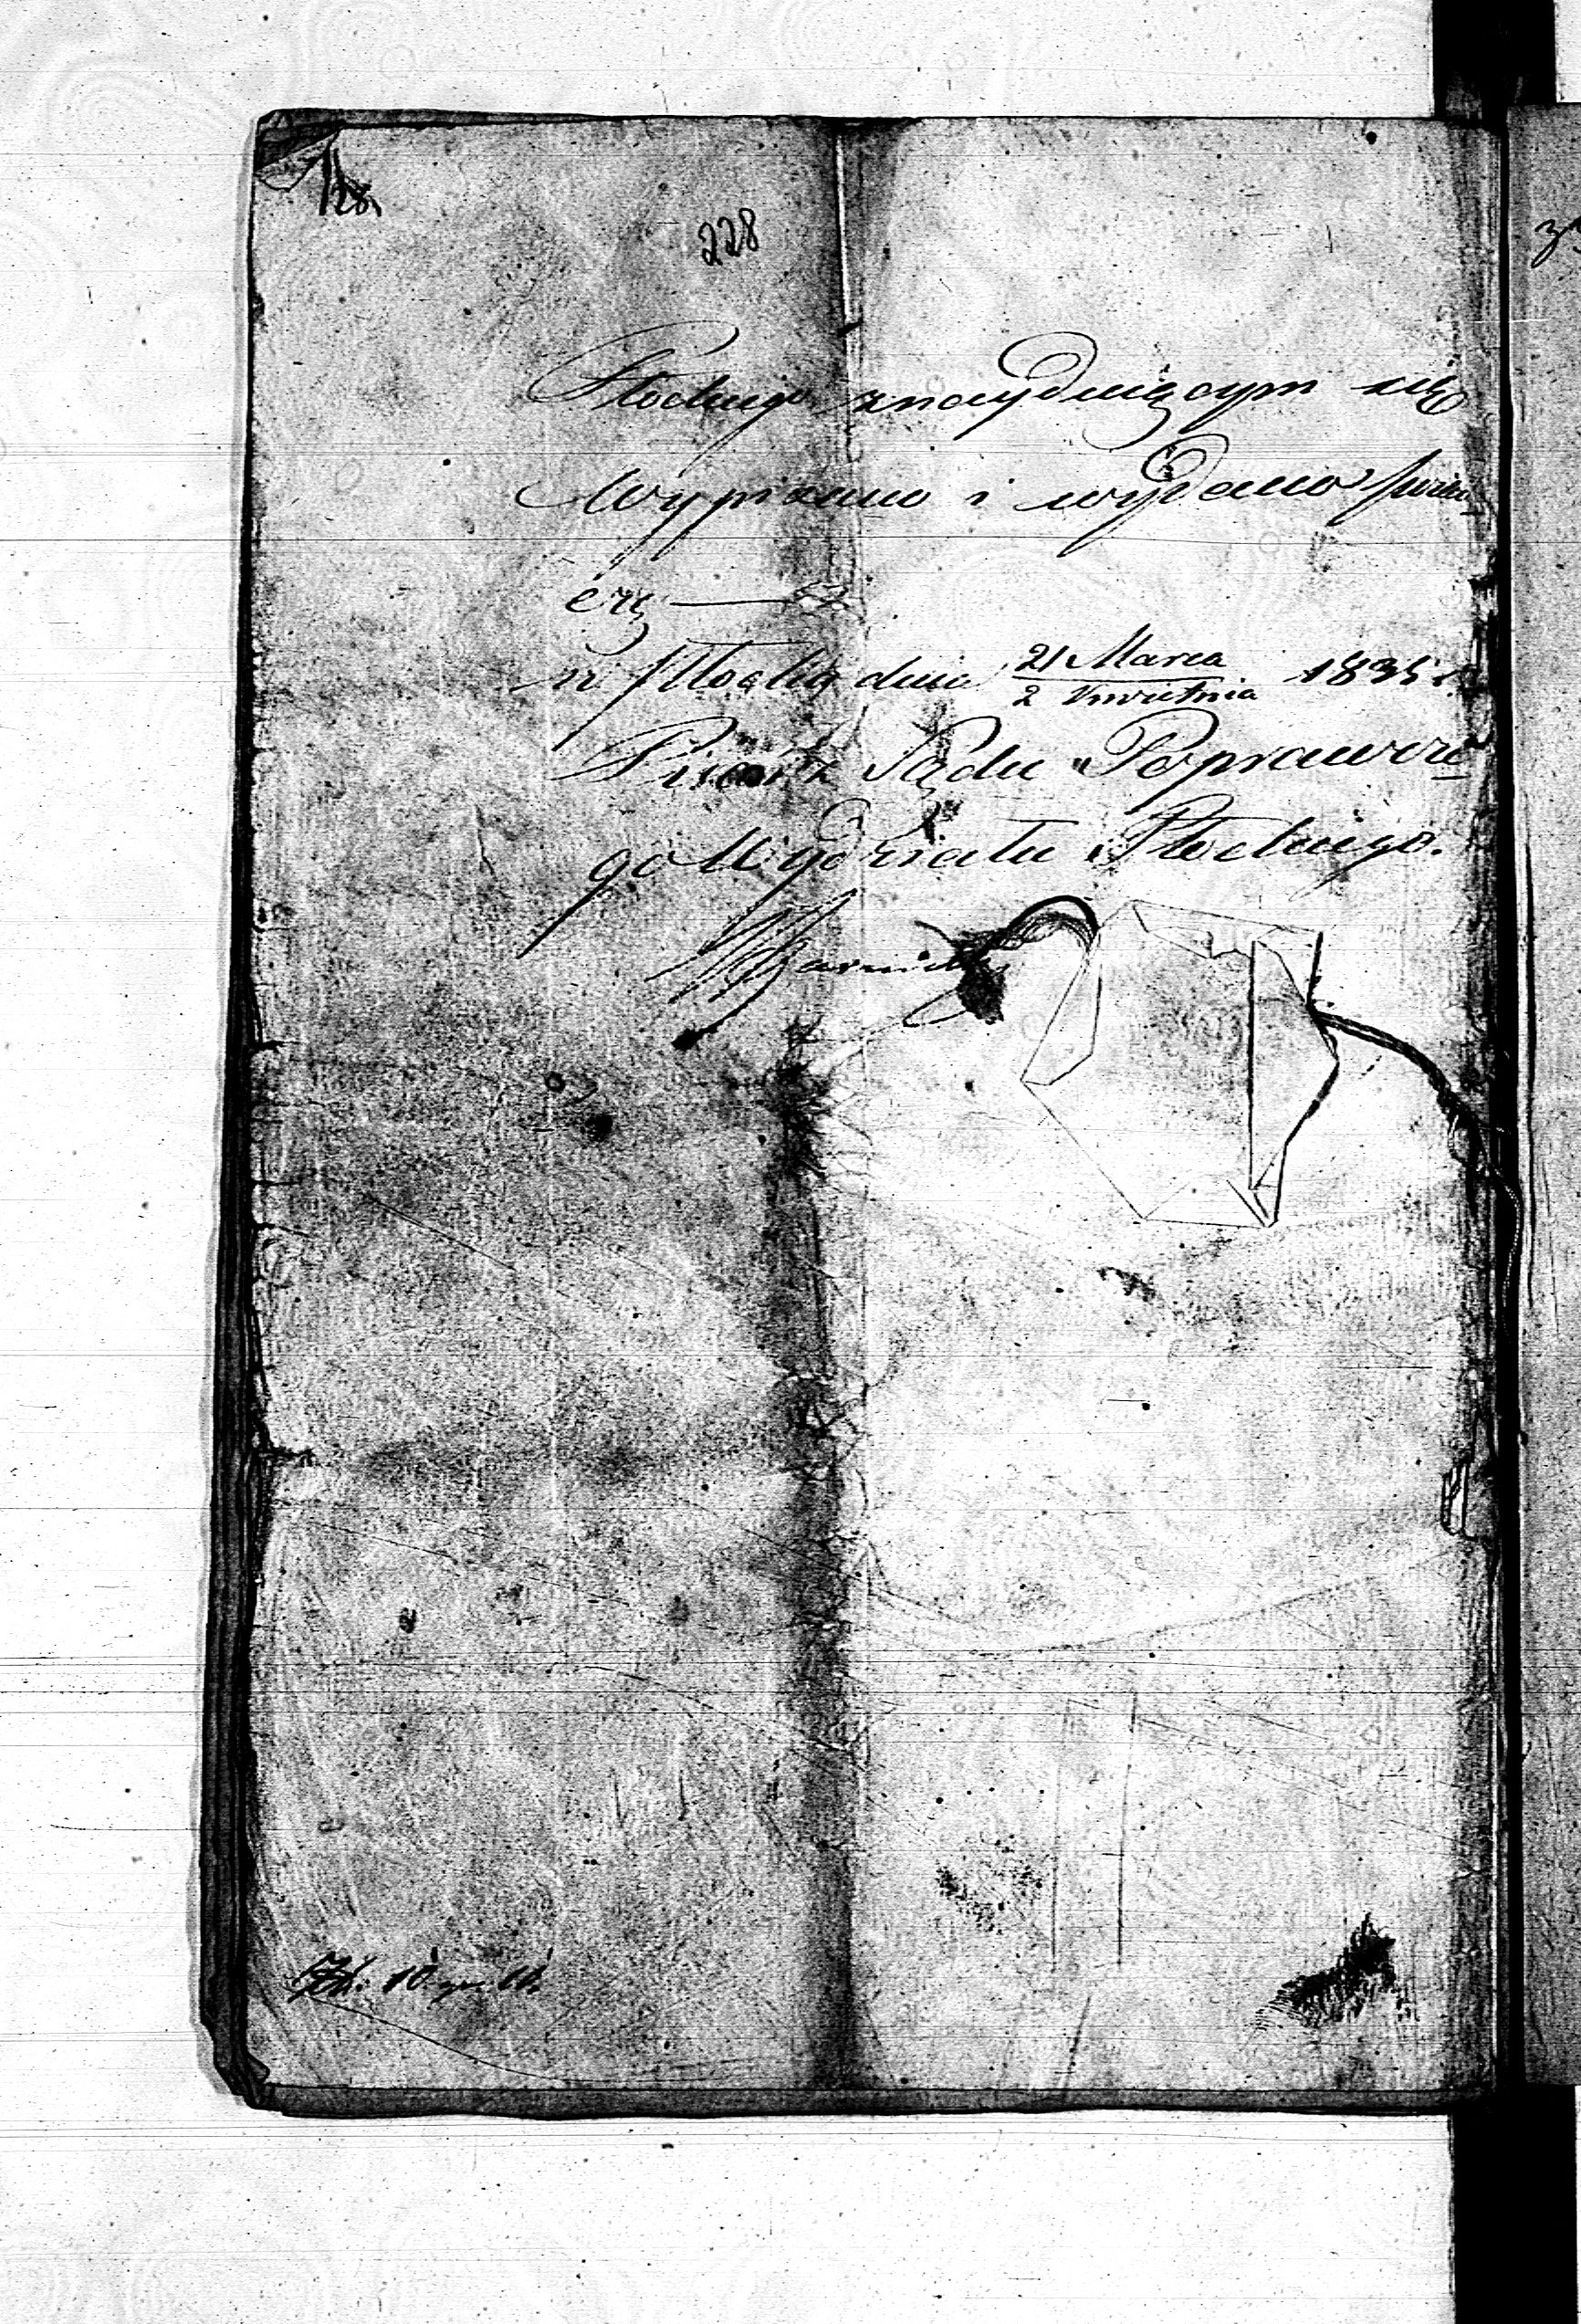 128.
228
Płockiego znaydującym się
Wypisano i wydano świad
erz
w Płocku dnia 21 Marca / 2 Kwietnia 1835 r.
Pisarz Sądu Poprawcze
go Wydziału Płockiego.